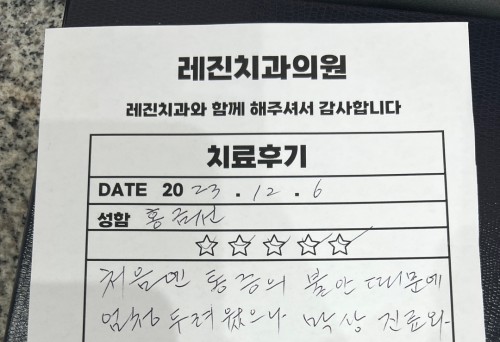 레진치과의원
레진치과와 함께 해주셔서 감사합니다
치료후기
DATE 2023.12.6
성함 홍
☆☆☆☆☆
처음엔 통증의 불안 때문에
엄청 두려웠으나 막상 진료와